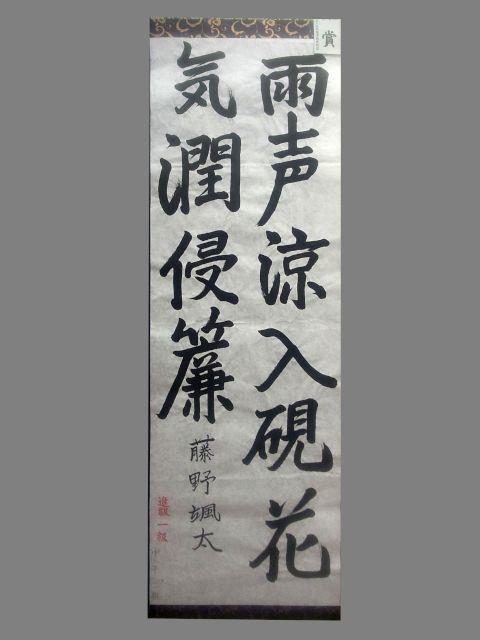 雨声涼入硯花
気潤侵簾
藤野颯太
進級一級
賞